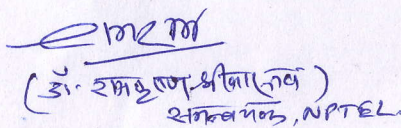 (डॉ. रामकृष्ण श्रीवास्तव)
समन्वयक, NPTEL